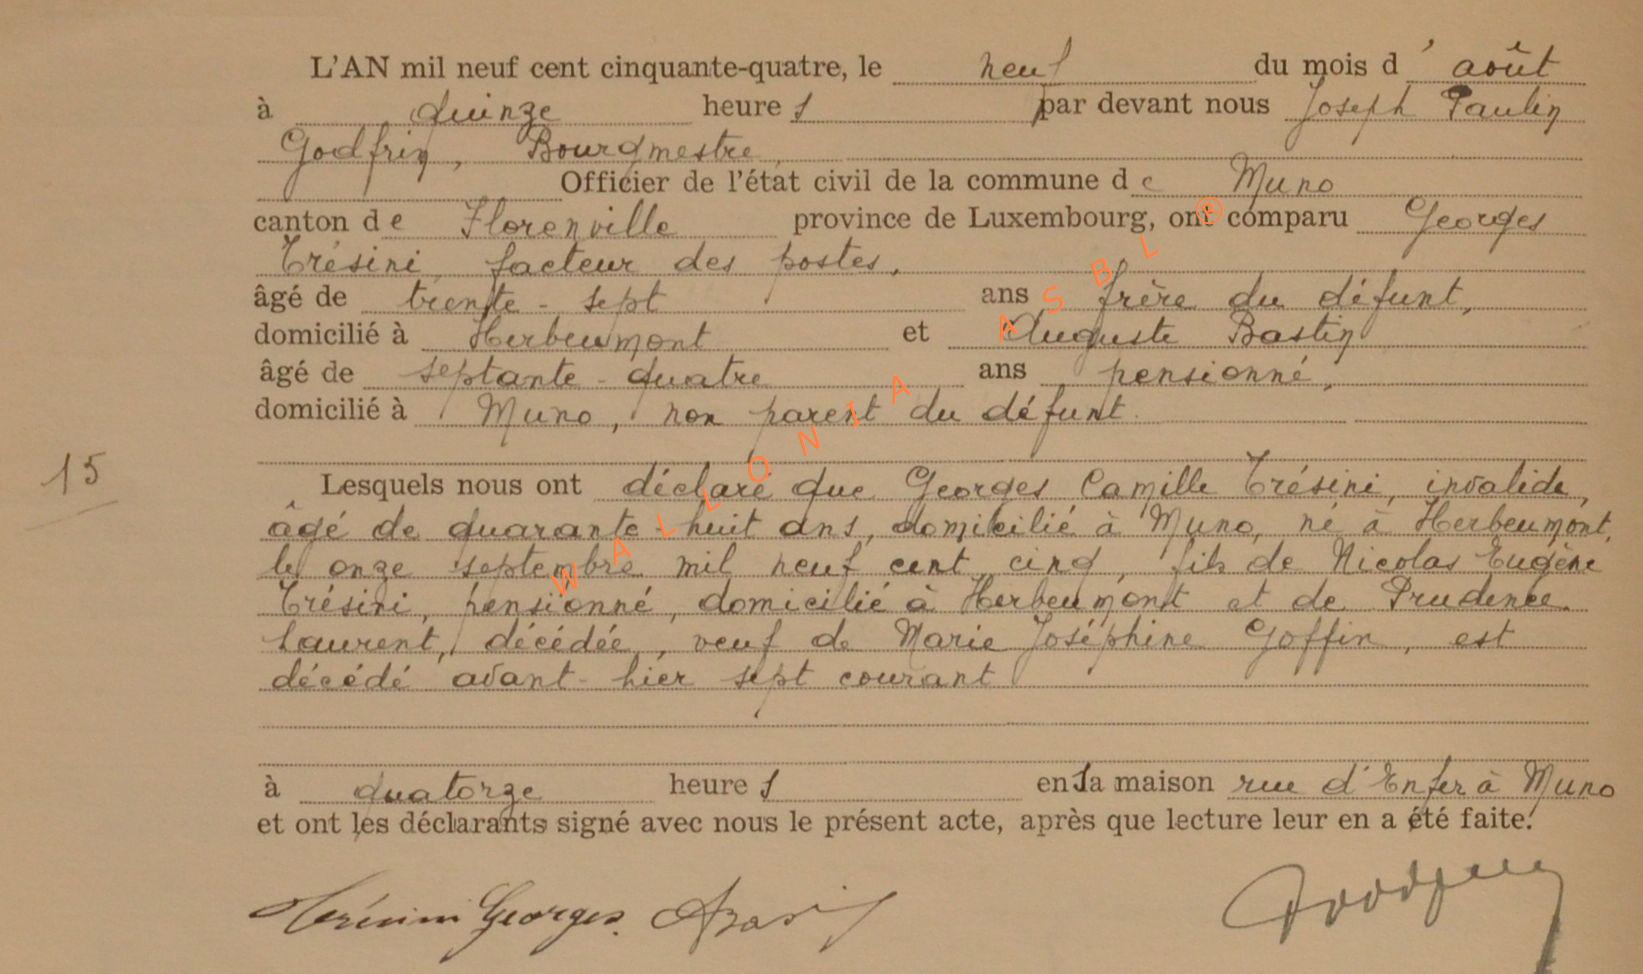 L'AN mil neuf cent cinquante-quatre, le neuf du mois d'août
à quinze heures par devant nous Joseph Paulin
Godfrin, Bourgmestre,
Officier de l'état civil de la commune de Muno
canton de Florenville province de Luxembourg, ont comparu Georges
Trésini, facteur des postes,
âgé de trente-sept ans frère du défunt,
domicilié à Herbeumont et Auguste Bastin
âgé de septante-quatre ans pensionné,
domicilié à Muno, non parent du défunt.
15
Lesquels nous ont déclaré que Georges Camille Trésini, invalide,
âgé de quarante-huit ans, domicilié à Muno, né à Herbeumont,
le onze septembre mil neuf cent cinq, fils de Nicolas Eugène
Trésini, pensionné, domicilié à Herbeumont et de Prudence
Laurent, décédée, veuf de Marie Joséphine Goffin, est
décédé avant-hier sept courant
à quatorze heures en sa maison rue d'Enfer à Muno
et ont les déclarants signé avec nous le présent acte, après que lecture leur en a été faite.
Trésini Georges
WALLONIA ASBL ®